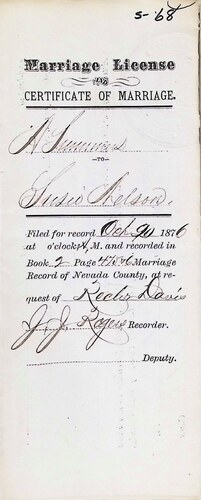 5-68
Marriage License
AND
CERTIFICATE OF MARRIAGE.
A Summers
—TO—
Susie Nelson.
Filed for record Oct 9th 1876
at o'clock A, M. and recorded in
Book 2 Page Marriage
Record of Nevada County, at re-
quest of Davis
J. J. Rogers Recorder.
Deputy.